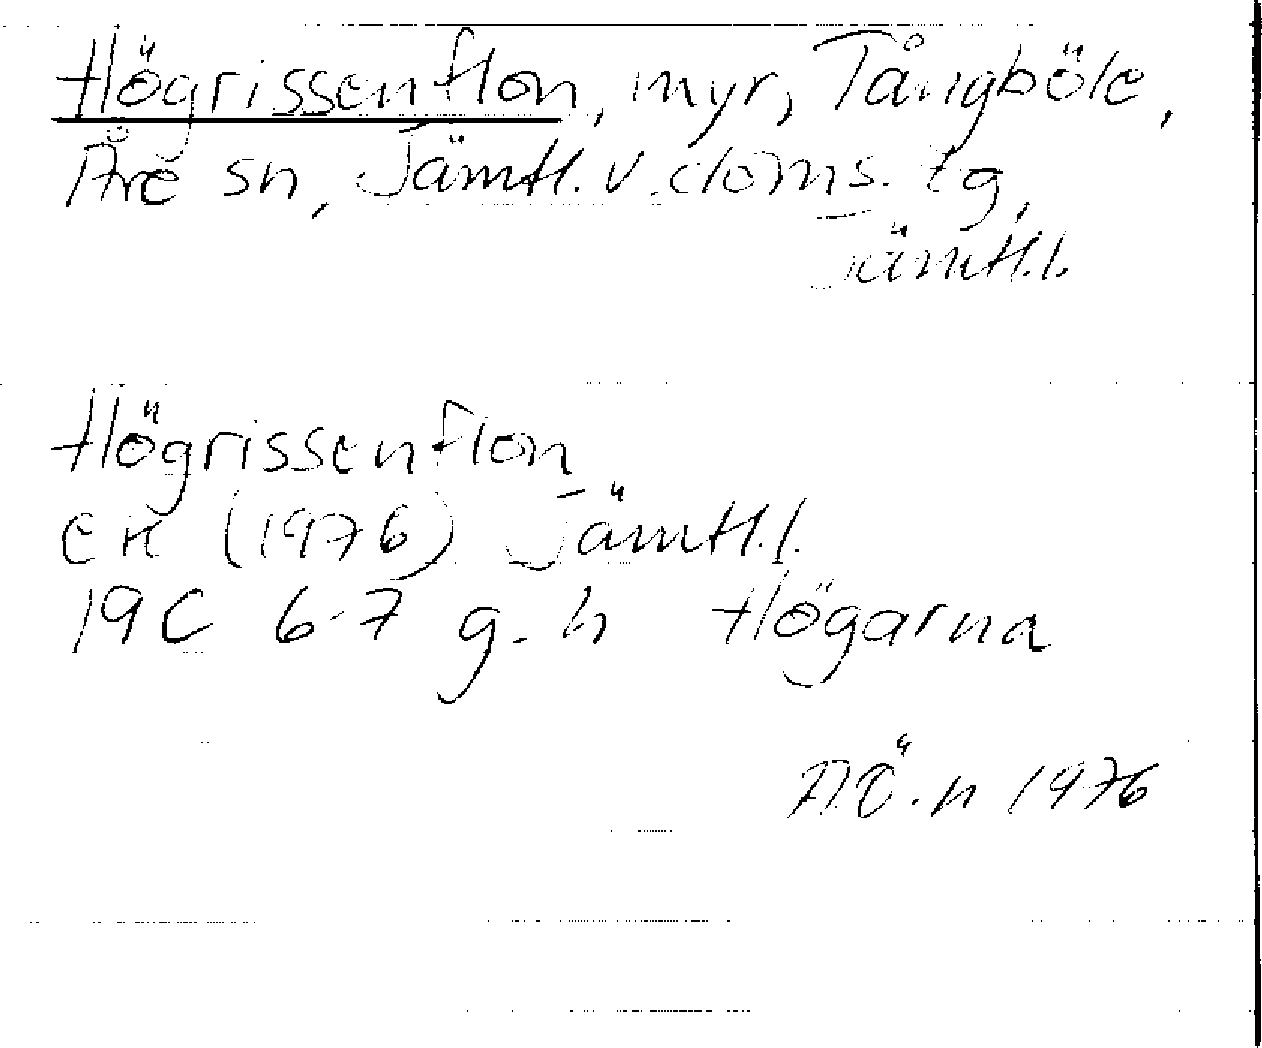 Högrissenflon, myr, Tångböle,
Åre sn, Jämtl. v. doms. tg,
Jämtl.l.
Högrissenflon
EK (1976) Jämtl.l.
19C 6-7 g-h Högarna
AÖ.n 1976